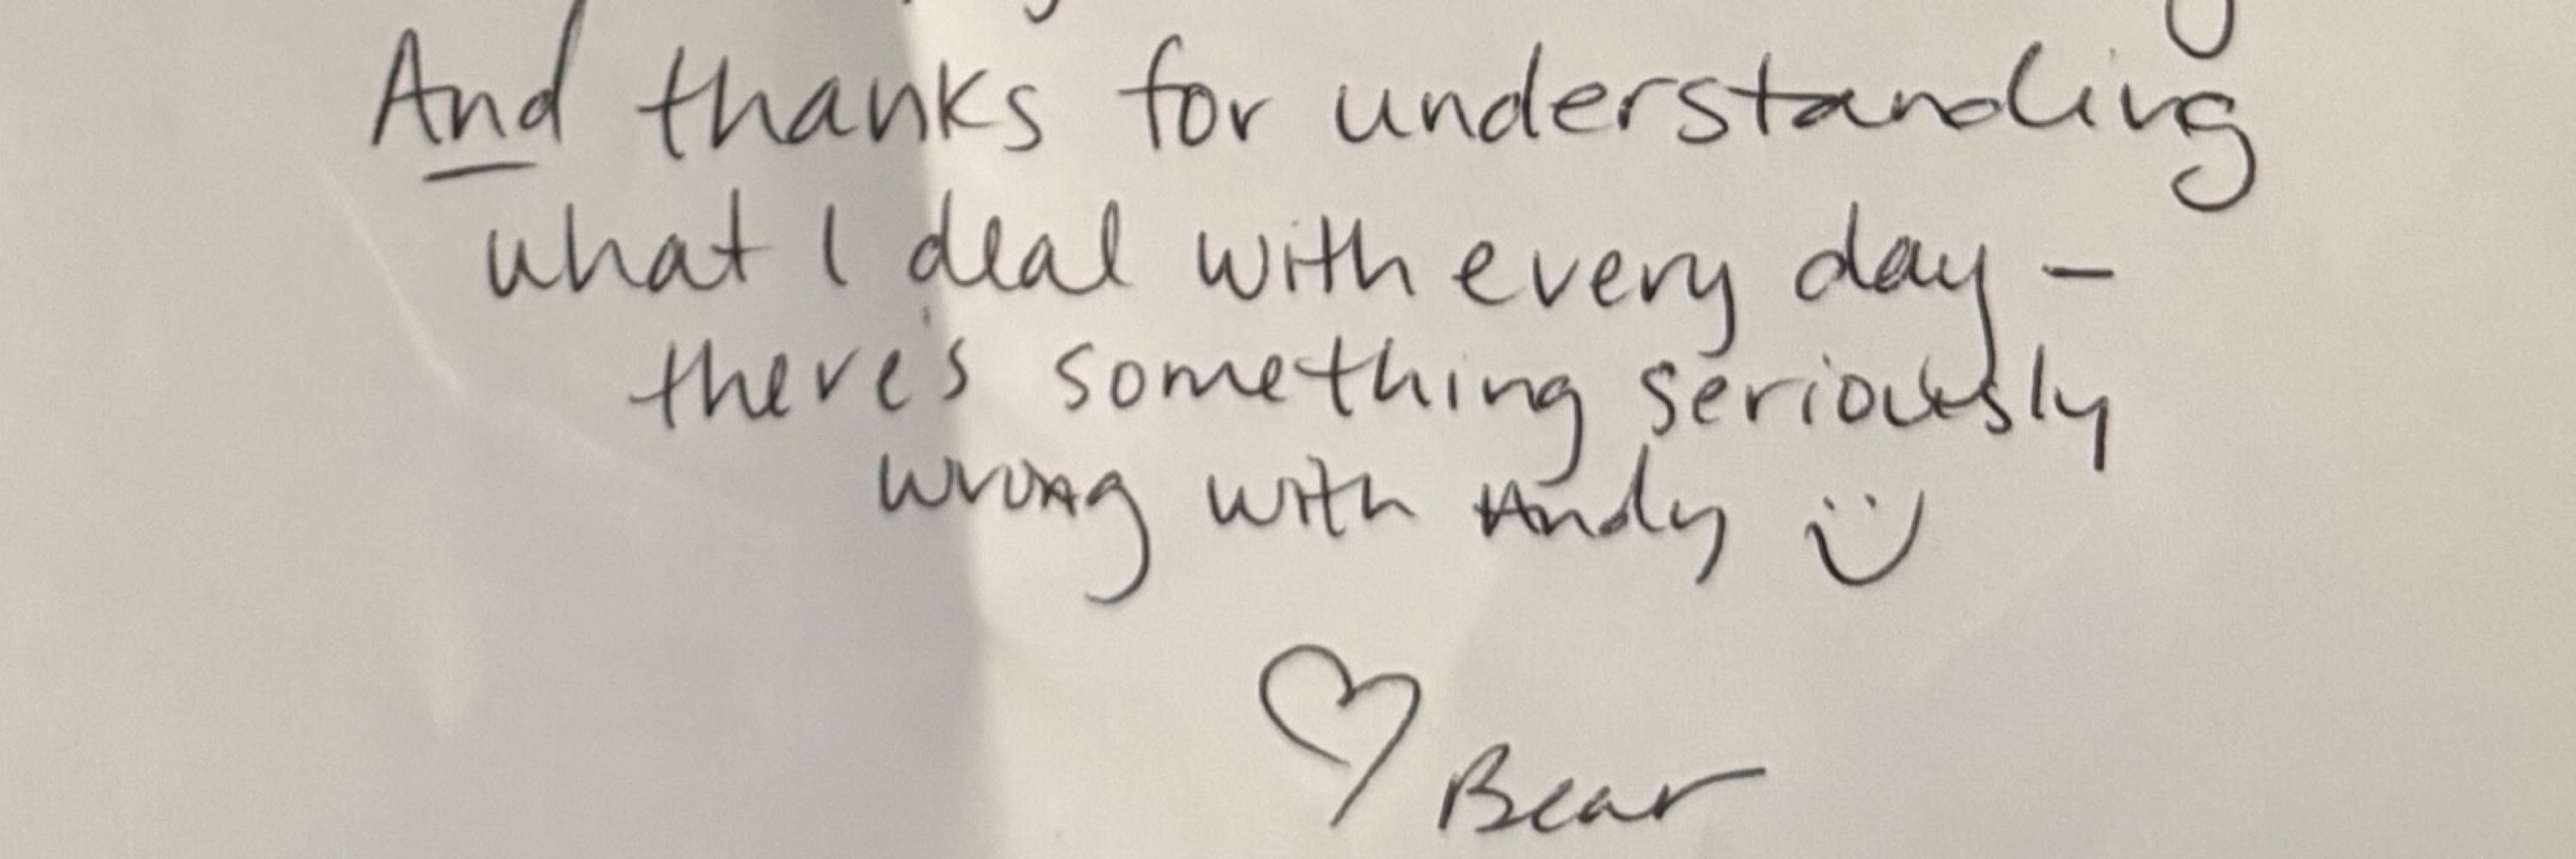 And thanks for understanding
what I deal with every day –
there's something seriously
wrong with Andy :)
♡ Bear